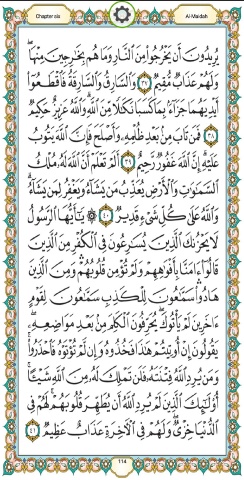 Chapter six
Al-Maidah
يُرِيدُونَ أَن يَخْرُجُوا۟ مِنَ ٱلنَّارِ وَمَا هُم بِخَٰرِجِينَ مِنْهَا ۖ
وَلَهُمْ عَذَابٌ مُّقِيمٌ ٣٧ وَٱلسَّارِقُ وَٱلسَّارِقَةُ فَٱقْطَعُوٓا۟
أَيْدِيَهُمَا جَزَآءًۢ بِمَا كَسَبَا نَكَٰلًا مِّنَ ٱللَّهِ ۗ وَٱللَّهُ عَزِيزٌ حَكِيمٌ
٣٨ فَمَن تَابَ مِنۢ بَعْدِ ظُلْمِهِۦ وَأَصْلَحَ فَإِنَّ ٱللَّهَ يَتُوبُ
عَلَيْهِ ۗ إِنَّ ٱللَّهَ غَفُورٌ رَّحِيمٌ ٣٩ أَلَمْ تَعْلَمْ أَنَّ ٱللَّهَ لَهُۥ مُلْكُ
ٱلسَّمَٰوَٰتِ وَٱلْأَرْضِ يُعَذِّبُ مَن يَشَآءُ وَيَغْفِرُ لِمَن يَشَآءُ ۗ
وَٱللَّهُ عَلَىٰ كُلِّ شَىْءٍ قَدِيرٌ ٤٠ ۞ يَٰٓأَيُّهَا ٱلرَّسُولُ
لَا يَحْزُنكَ ٱلَّذِينَ يُسَٰرِعُونَ فِى ٱلْكُفْرِ مِنَ ٱلَّذِينَ
قَالُوٓا۟ ءَامَنَّا بِأَفْوَٰهِهِمْ وَلَمْ تُؤْمِن قُلُوبُهُمْ ۛ وَمِنَ ٱلَّذِينَ
هَادُوا۟ ۛ سَمَّٰعُونَ لِلْكَذِبِ سَمَّٰعُونَ لِقَوْمٍ
ءَاخَرِينَ لَمْ يَأْتُوكَ ۖ يُحَرِّفُونَ ٱلْكَلِمَ مِنۢ بَعْدِ مَوَاضِعِهِۦ ۖ
يَقُولُونَ إِنْ أُوتِيتُمْ هَٰذَا فَخُذُوهُ وَإِن لَّمْ تُؤْتَوْهُ فَٱحْذَرُوا۟ ۚ
وَمَن يُرِدِ ٱللَّهُ فِتْنَتَهُۥ فَلَن تَمْلِكَ لَهُۥ مِنَ ٱللَّهِ شَيْـًٔا ۚ
أُو۟لَٰٓئِكَ ٱلَّذِينَ لَمْ يُرِدِ ٱللَّهُ أَن يُطَهِّرَ قُلُوبَهُمْ ۚ لَهُمْ فِى
ٱلدُّنْيَا خِزْىٌ ۖ وَلَهُمْ فِى ٱلْءَاخِرَةِ عَذَابٌ عَظِيمٌ ٤١
114